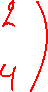 2
4
)